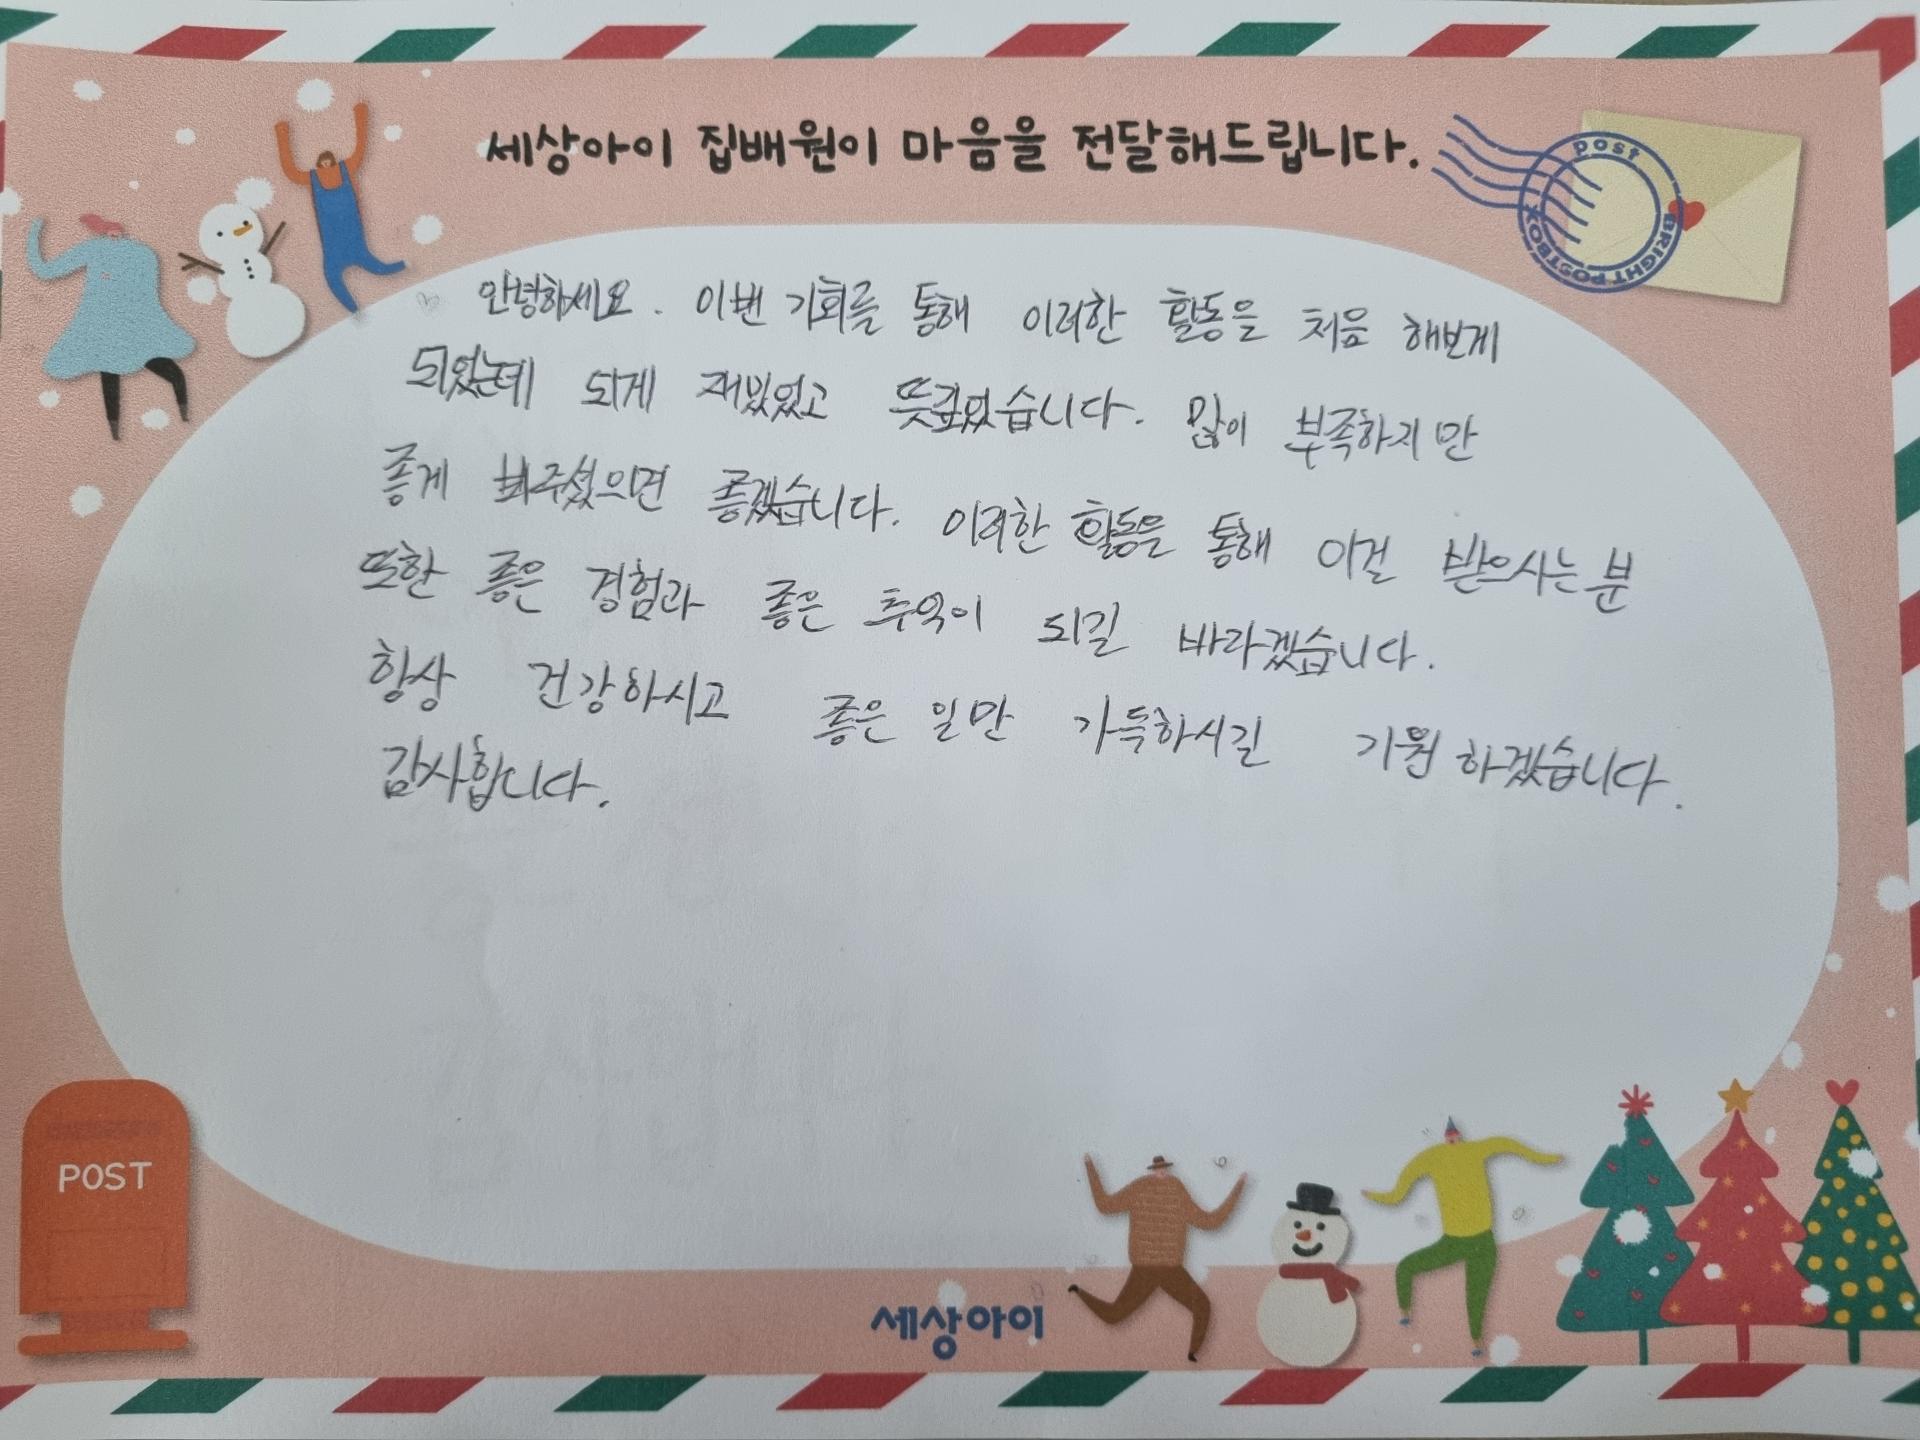 세상아이 집배원이 마음을 전달해드립니다.
post
BRIGHT POSTBOX
안녕하세요. 이번 기회를 통해 이러한 활동을 처음 해보게
되었는데 되게 재밌었고 뜻깊었습니다. 많이 부족하지만
좋게 봐주셨으면 좋겠습니다. 이러한 활동을 통해 이걸 받으시는 분
또한 좋은 경험과 좋은 추억이 되길 바라겠습니다.
항상 건강하시고 좋은 일만 가득하시길 기원하겠습니다.
감사합니다.
POST
세상아이